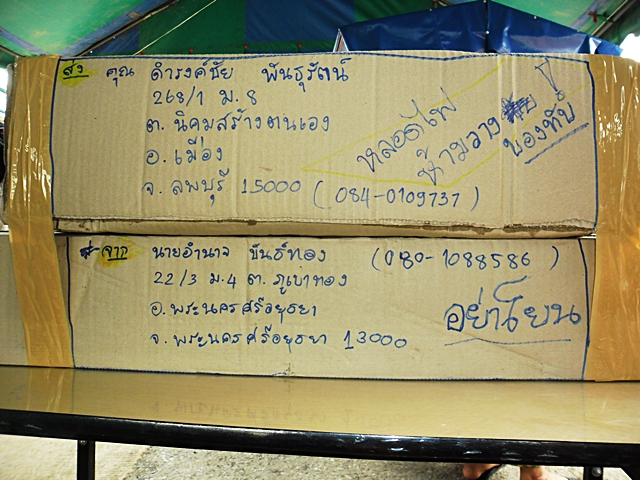 ส่ง คุณ ดำรงค์ชัย พันธุรัตน์
268/1 ม.8
ต.นิคมสร้างตนเอง
อ.เมือง
จ.ลพบุรี 15000 (084-0109737)
หลอดไฟ
ห้ามวาง
ของทับ
จาก นายอำนาจ ขันธ์ทอง (080-1088586)
22/3 ม.4 ต.ภูเขาทอง
อ.พระนครศรีอยุธยา
จ.พระนครศรีอยุธยา 13000
อย่าโยน